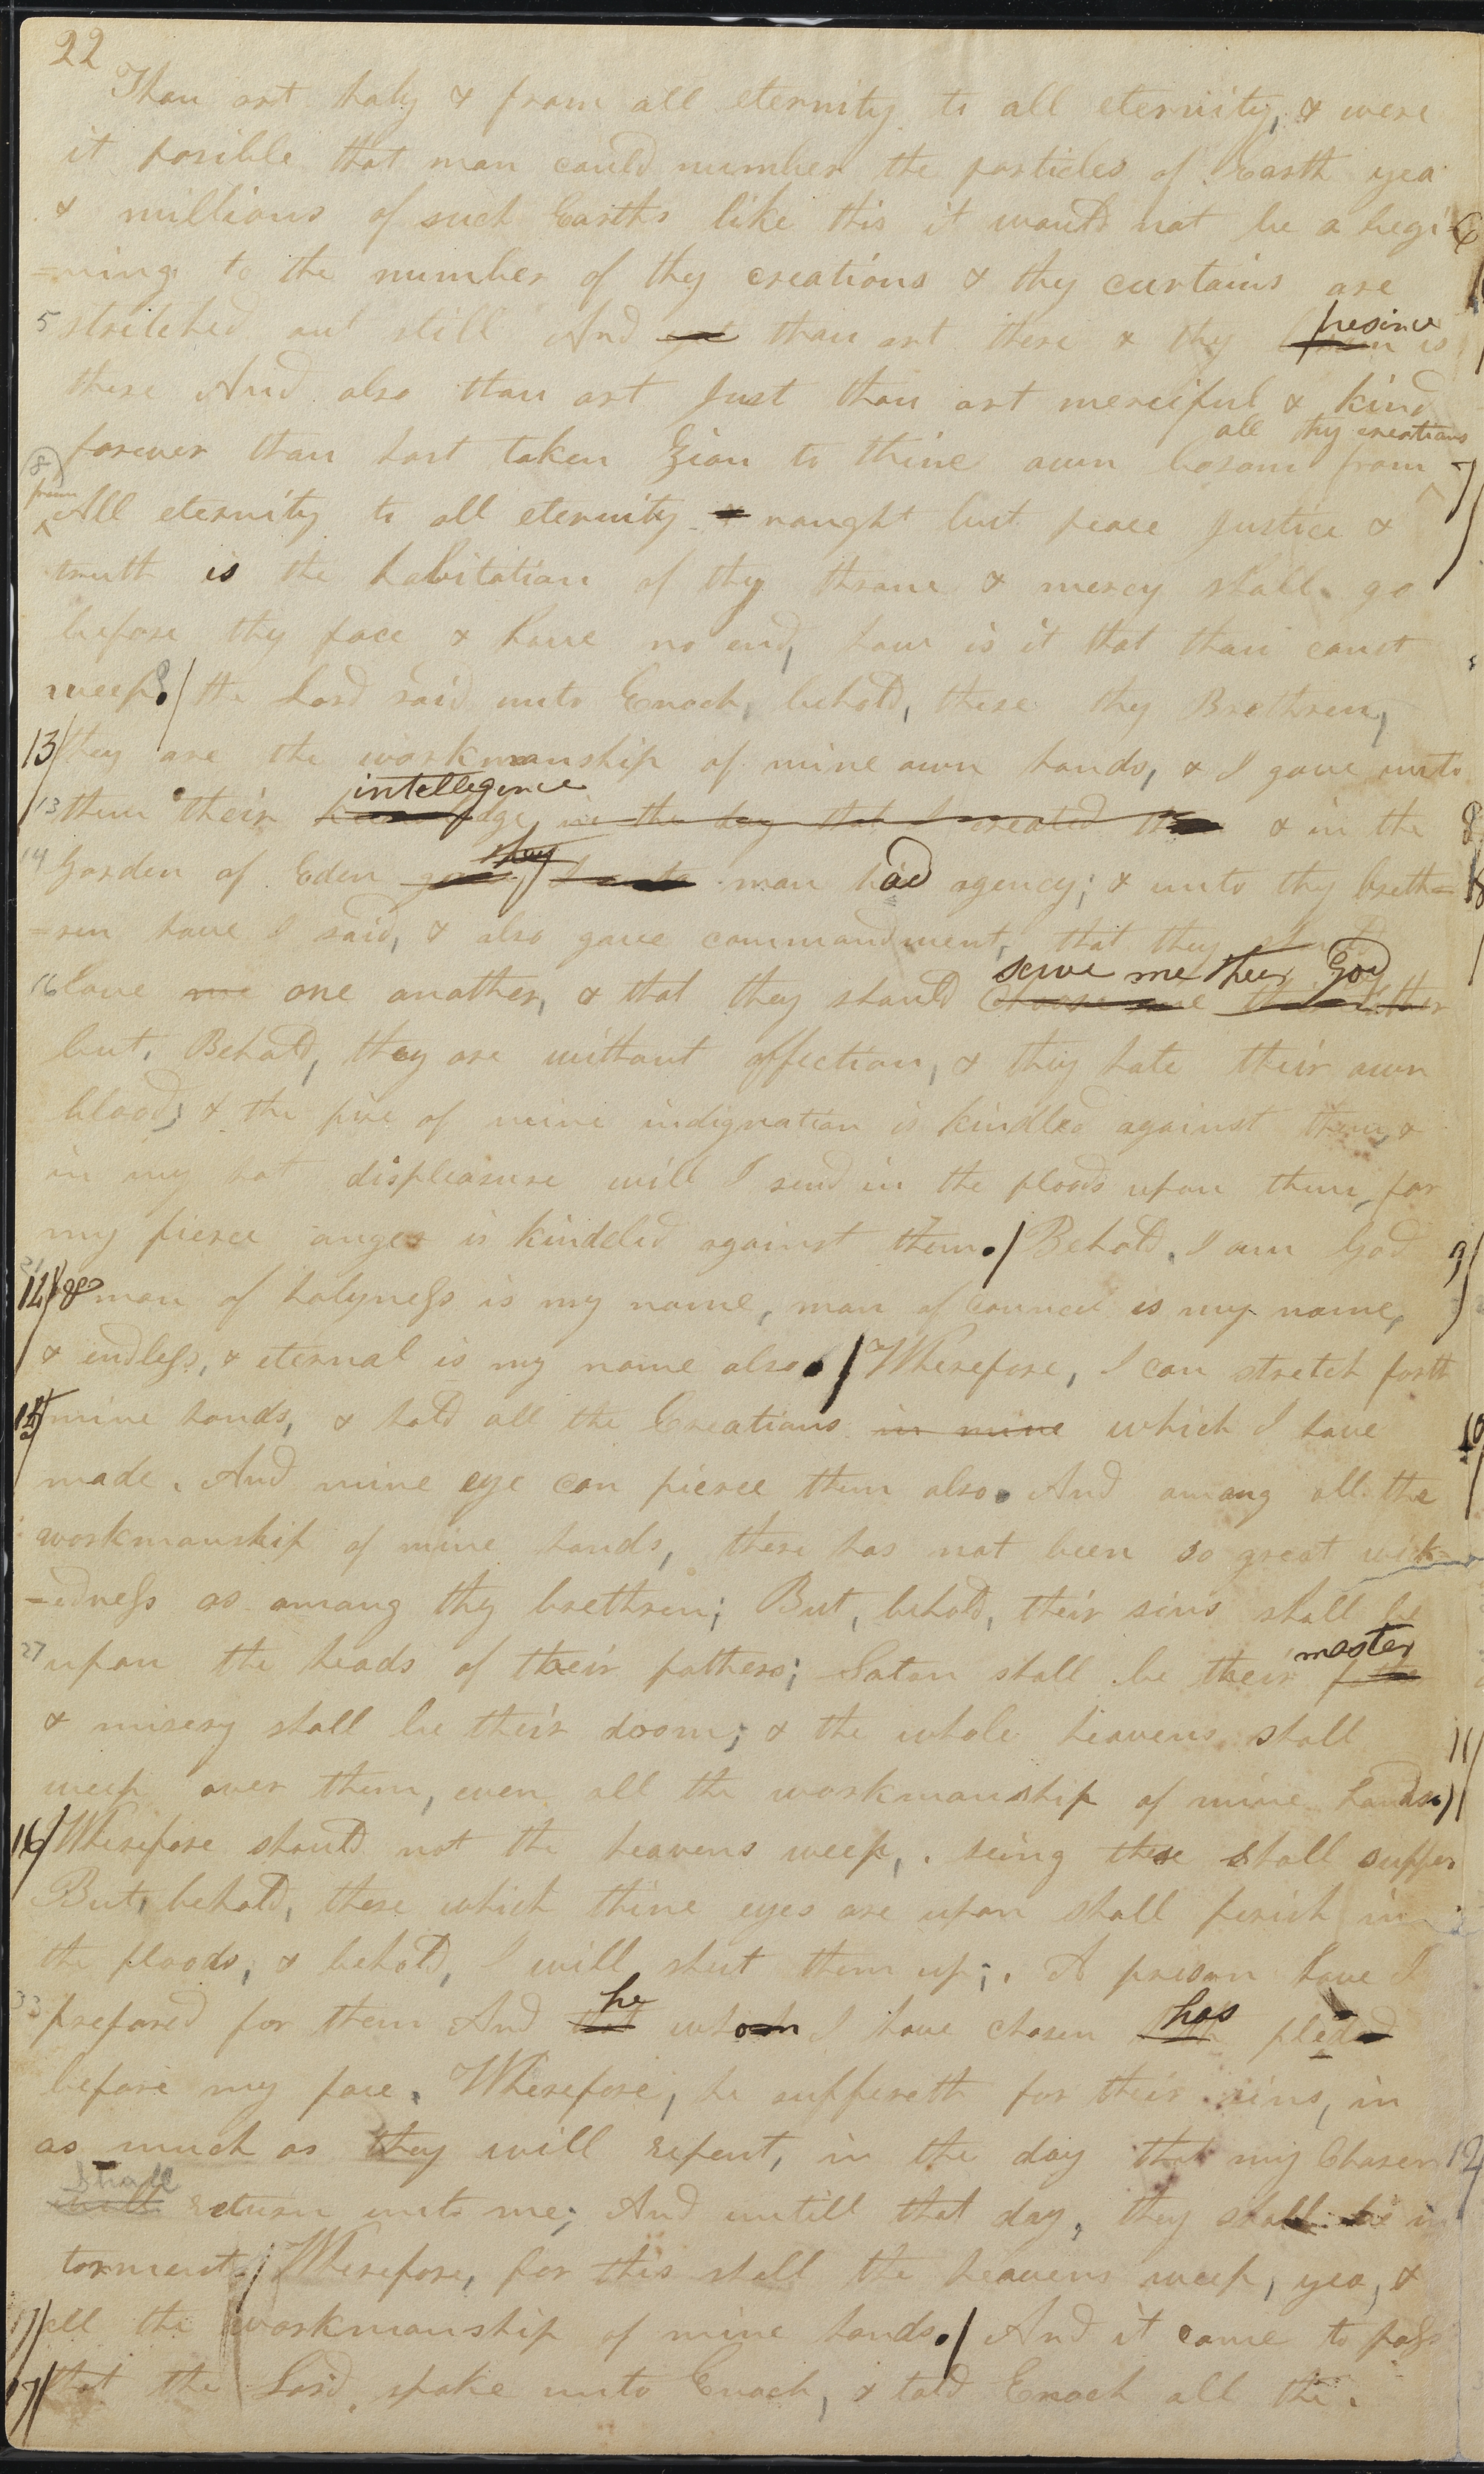 22
Thou art holy & from all eternity to all eternity, & were
it posible that man could number the particles of Earth yea
& millions of such Earths like this it would not be a begi 6
=ning to the number of thy creations & thy curtains are
5 stretched out still And yet thou art there & thy bosom presince is
there And also thou art Just thou art merciful & kind
forever thou hast taken Zion to thine own bosom from all thy creations 7
8 from All eternity to all eternity & naught but peace Justice &
truth is the habitation of thy throne & mercy shall go
before thy face & have no end, how is it that thou canst
weep. / the Lord said unto Enoch, behold, these thy Brethren,
13/ they are the workmanship of mine own hands, & I gave unto
13 them their knowledge intellegence in the day that I created them & in the 8
14 Garden of Eden gave they I unto man had agency; & unto thy breth=
=ren have I said, & also gave commandment, that they should
16 love me one another, & that they should choose me their father serve me their God
but, Behold, they are without affection, & they hate their own
blood; & the fire of mine indignation is kindled against them, &
in my hot displeasure will I send in the floods upon them, for
my fierce anger is kindeled against them. / Behold, I am God 9/
14/ & man of holyness is my name, man of Council is my name,
& endless, & eternal is my name also. / Wherefore, I can stretch forth
15/ mine hands, & hold all the Creations in mine which I have 10
made. And mine eye can pierce them also. And among all the
workmanship of mine hands, there has not been so great wick
=edness as among thy brethren; But, behold, their sins shall be
27 upon the heads of their fathers; Satan shall be their father master
& misery shall be their doom; & the whole heavens shall 11/
weep over them, even all the workmanship of mine hands. /
16/ Wherefore should not the heavens weep, seing these shall suffer
But, behold, these which thine eyes are upon shall perish in
the floods, & behold, I will shut them up; A prison have I
33 prepared for them And that he whom I have chosen hath has pled
before my face. Wherefore, he suffereth for their sins, in
as much as they will repent, in the day that my Chosen 12
shall return unto me; And untill that day, they shall be in
torment. / Wherefore, for this shall the heavens weep, yea, &
17/ all the workmanship of mine hands. / And it came to pass
17/ that the Lord spake unto Enoch, & told Enoch all the